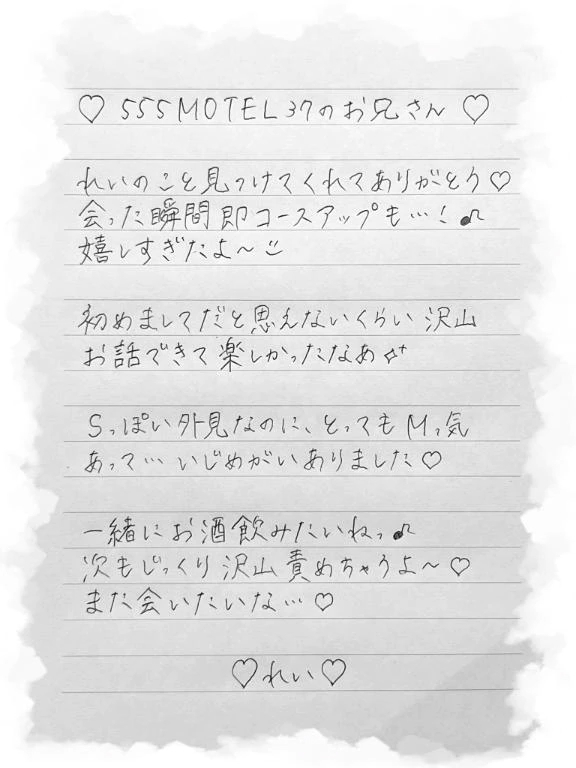 ♡ 555MOTEL 37のお兄さん ♡
れいのこと見つけてくれてありがとう♡
会った瞬間即コースアップも…！♪
嬉しすぎたよ〜
初めましてだと思えないくらい沢山
お話できて楽しかったなあ
Sっぽい外見なのに、とってもMっ気
あって…いじめがいありました♡
一緒にお酒飲みたいねっ♪
次もじっくり沢山責めちゃうよ〜♡
また会いたいな…♡
♡れい♡